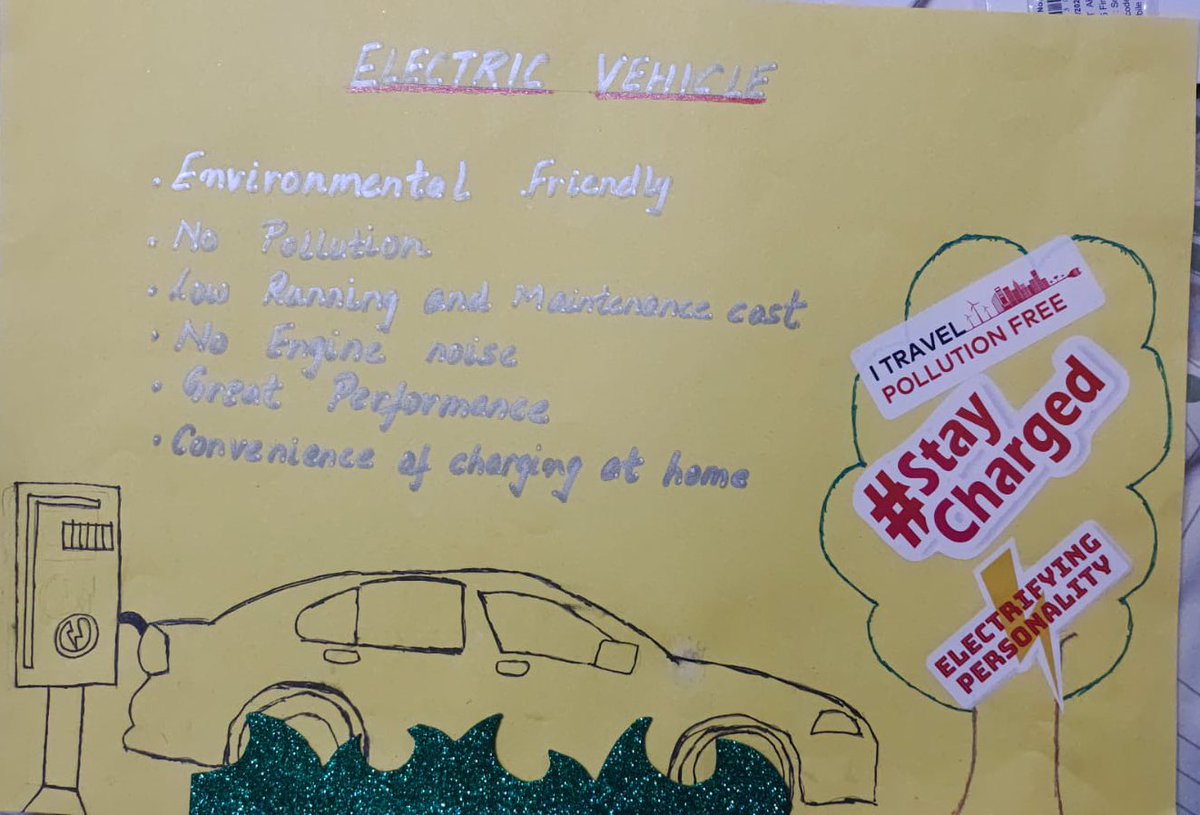 ELECTRIC VEHICLE
• Environmental Friendly
• No Pollution
• Low Running and Maintenance cost
• No Engine noise
• Great Performance
• Convenience of charging at home
I TRAVEL
POLLUTION FREE
#Stay
Charged
ELECTRIFYING
PERSONALITY